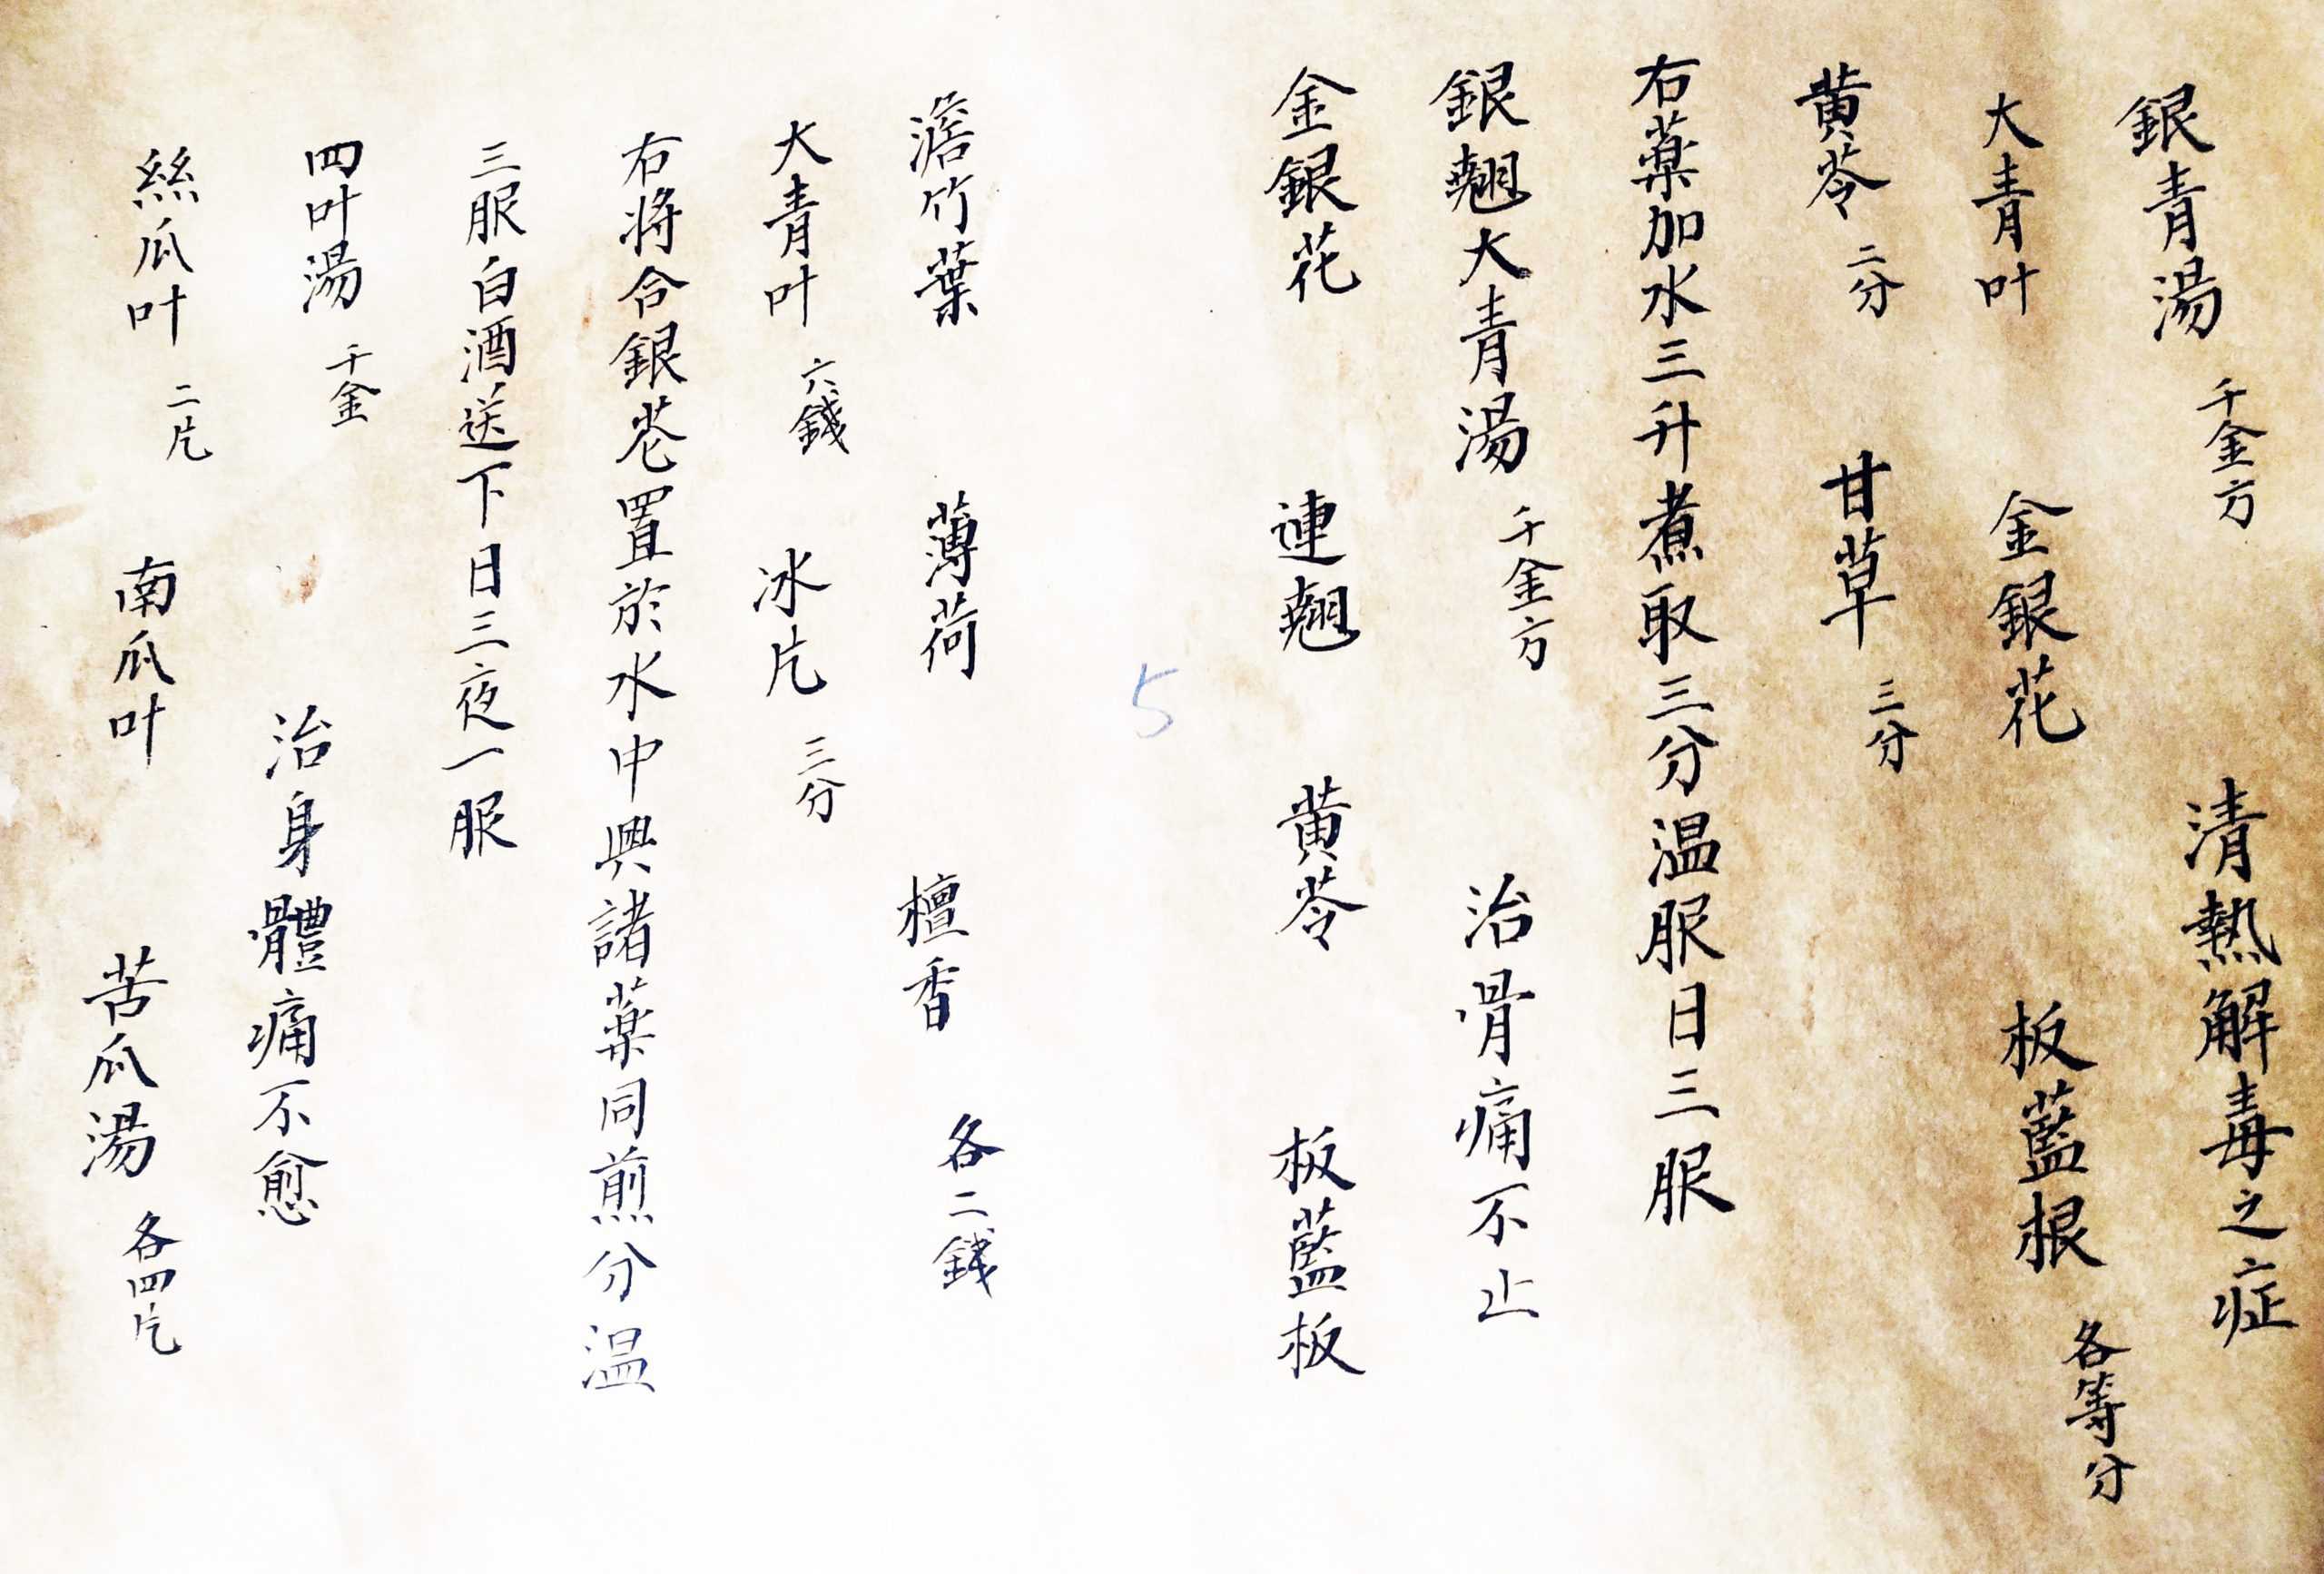 銀青湯 千金方 清熱解毒之症
大青叶 金銀花 板藍根 各等分
黄苓 二分 甘草 三分
右藥加水三升煮取三分温服日三服
銀翹大青湯 千金方 治骨痛不止
金銀花 連翹 黄苓 板藍板
5
澹竹葉 薄荷 檀香 各二錢
大青叶 六錢 冰片 三分
右将合銀花置於水中與諸藥同煎分温
三服白酒送下日三夜一服
四叶湯 千金 治身體痛不愈
絲瓜叶 二片 南瓜叶 苦瓜湯 各四片